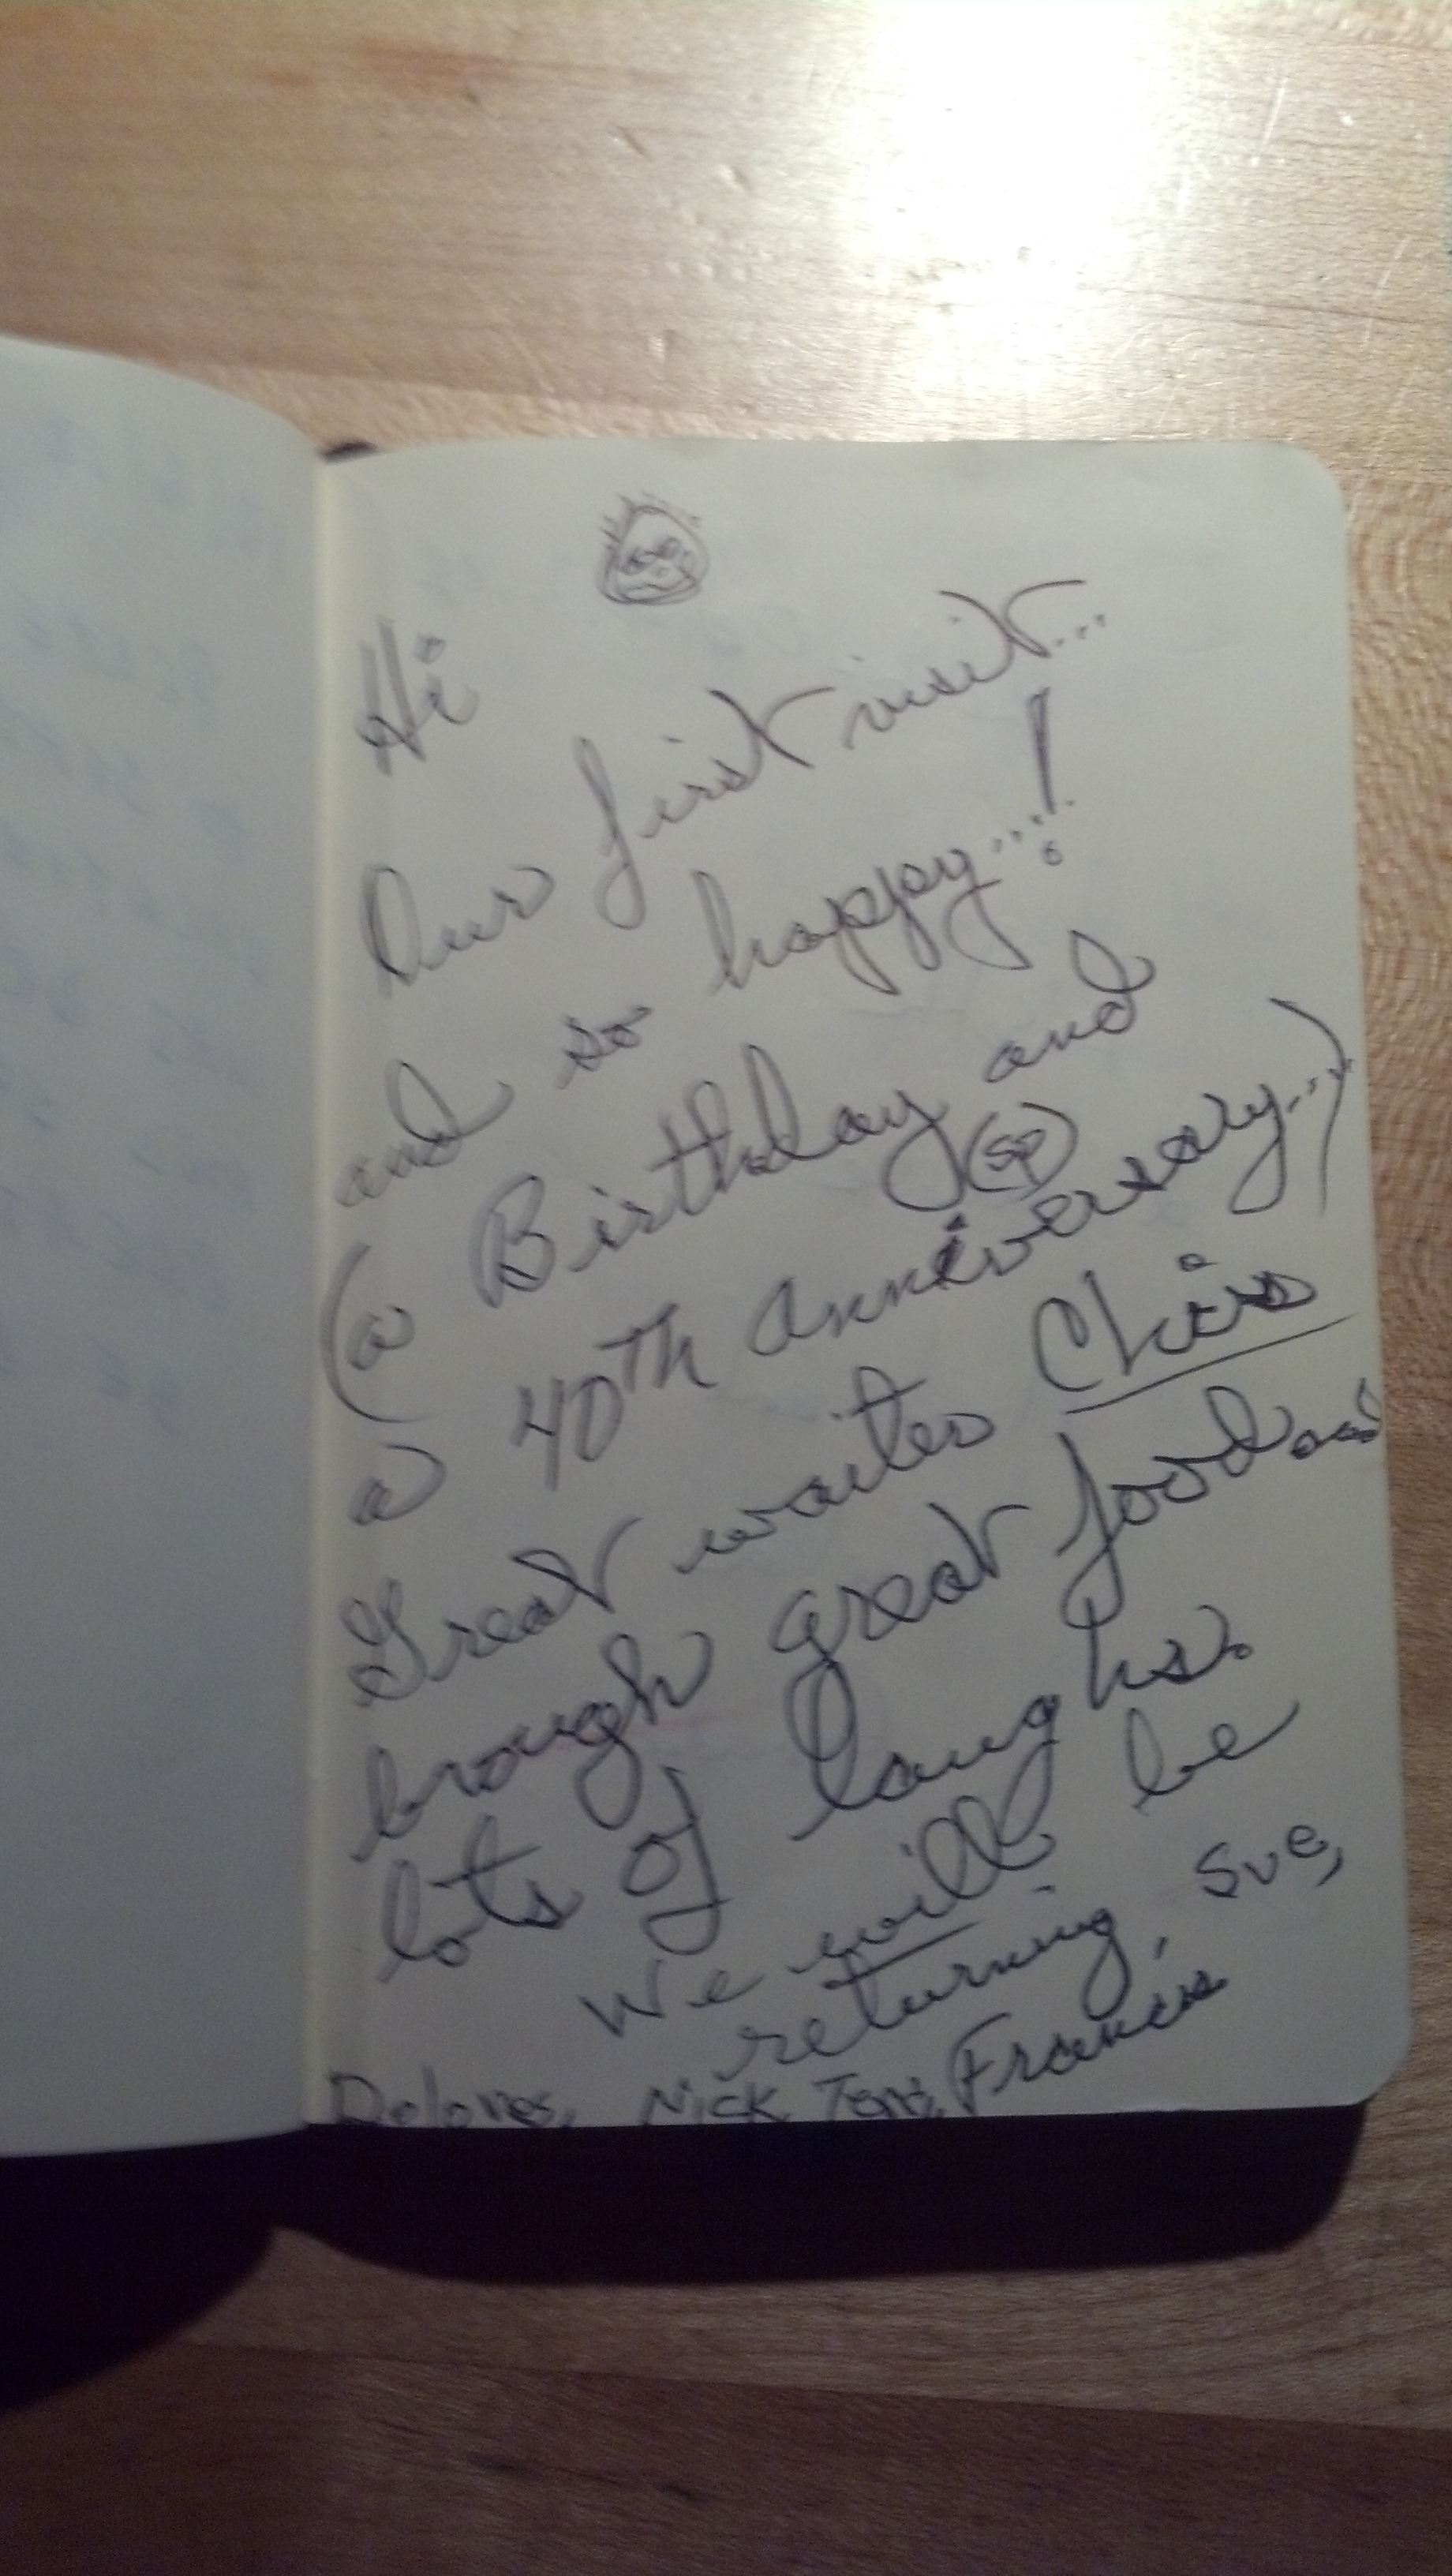 Hi
Our first visit...
and so happy...!
(a Birthday and
(sp)
a 40TH anniversary...)
Great waiter Chris
brough great food and
lots of laughs.
We will be
returning, Sue,
Dolores, Nick, Francis